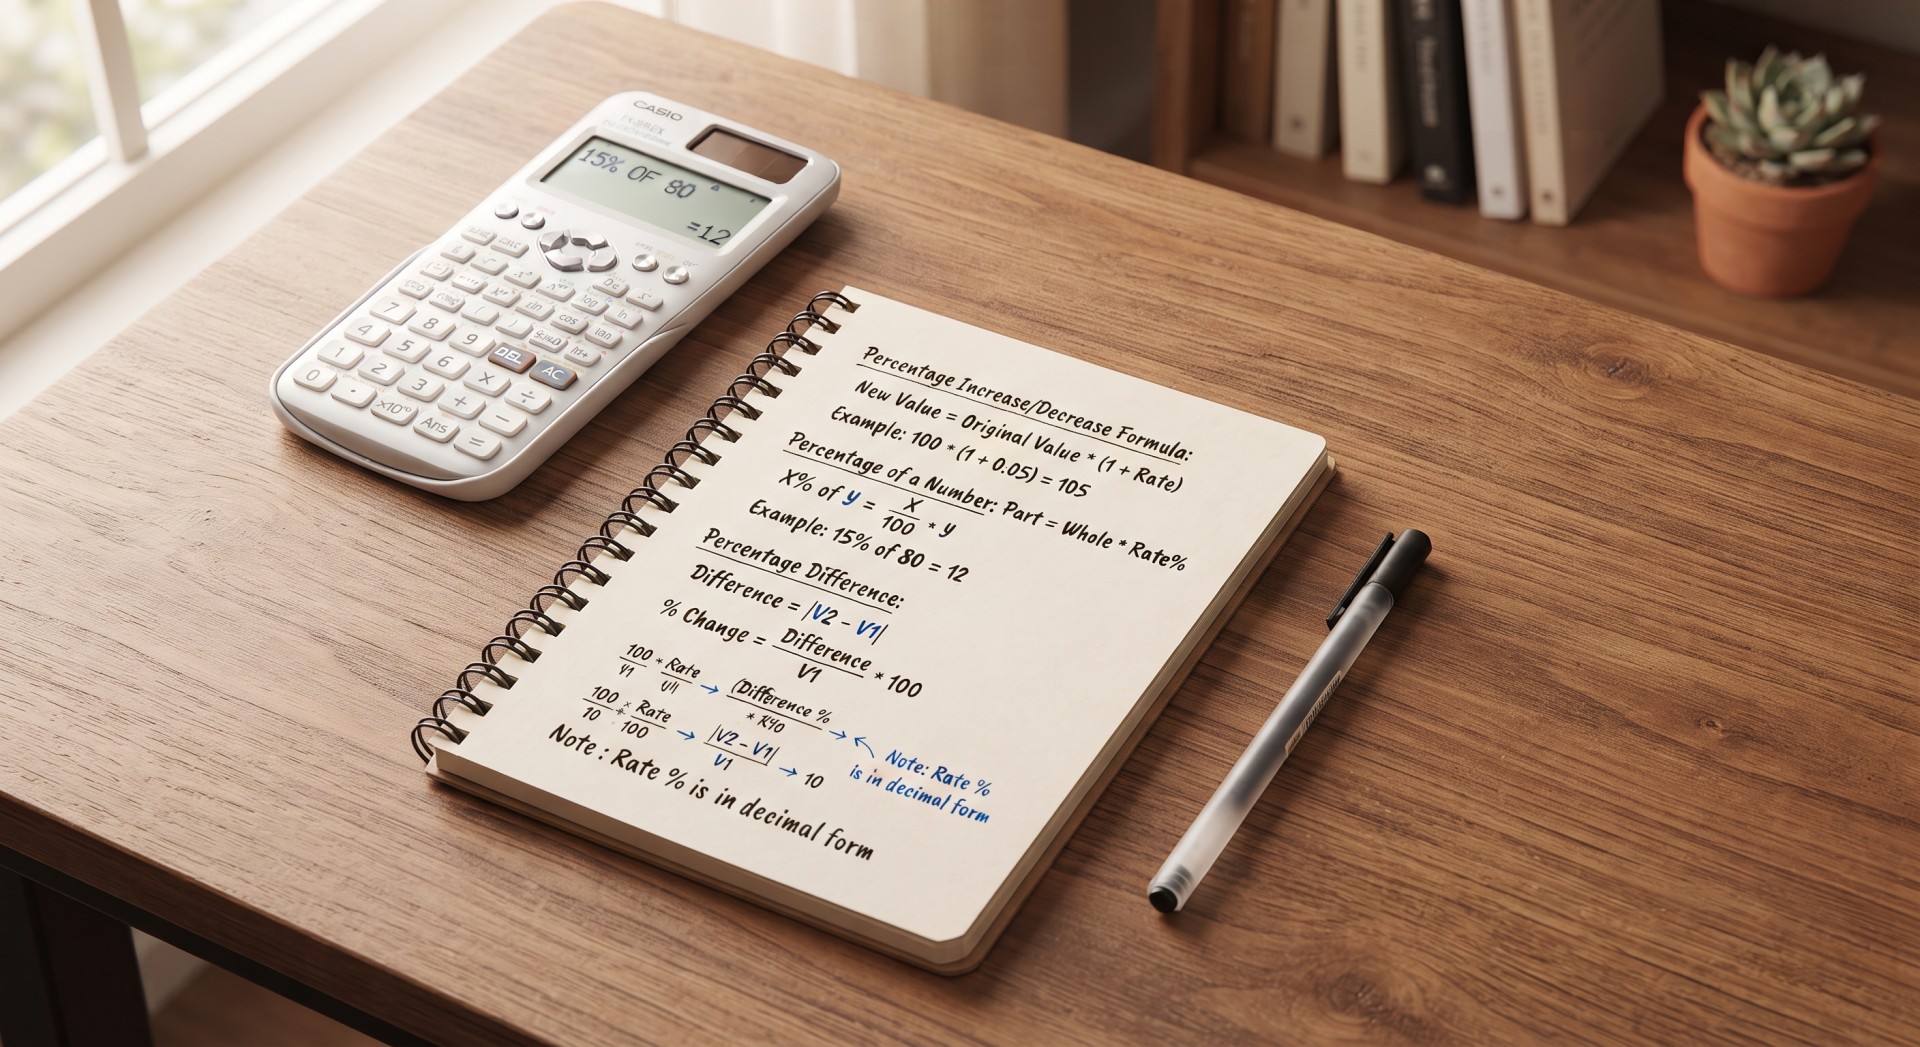 CASIO
15% OF 80
=12
7 8 9 DEL AC
4 5 6 × ÷
1 2 3 + −
0 . ×10 Ans =
sin
cos
tan
log
ln
Percentage Increase/Decrease Formula:
New Value = Original Value * (1 + Rate)
Example: 100 * (1 + 0.05) = 105
Percentage of a Number: Part = Whole * Rate%
X% of y = X/100 * y
Example: 15% of 80 = 12
Percentage Difference:
Difference = |V2 - V1|
% Change = Difference/V1 * 100
100 * Rate → (Difference %
100/10 Rate/100 → |V2 - V1|/V1 → 10
Note: Rate %
is in decimal form
Note : Rate % is in decimal form